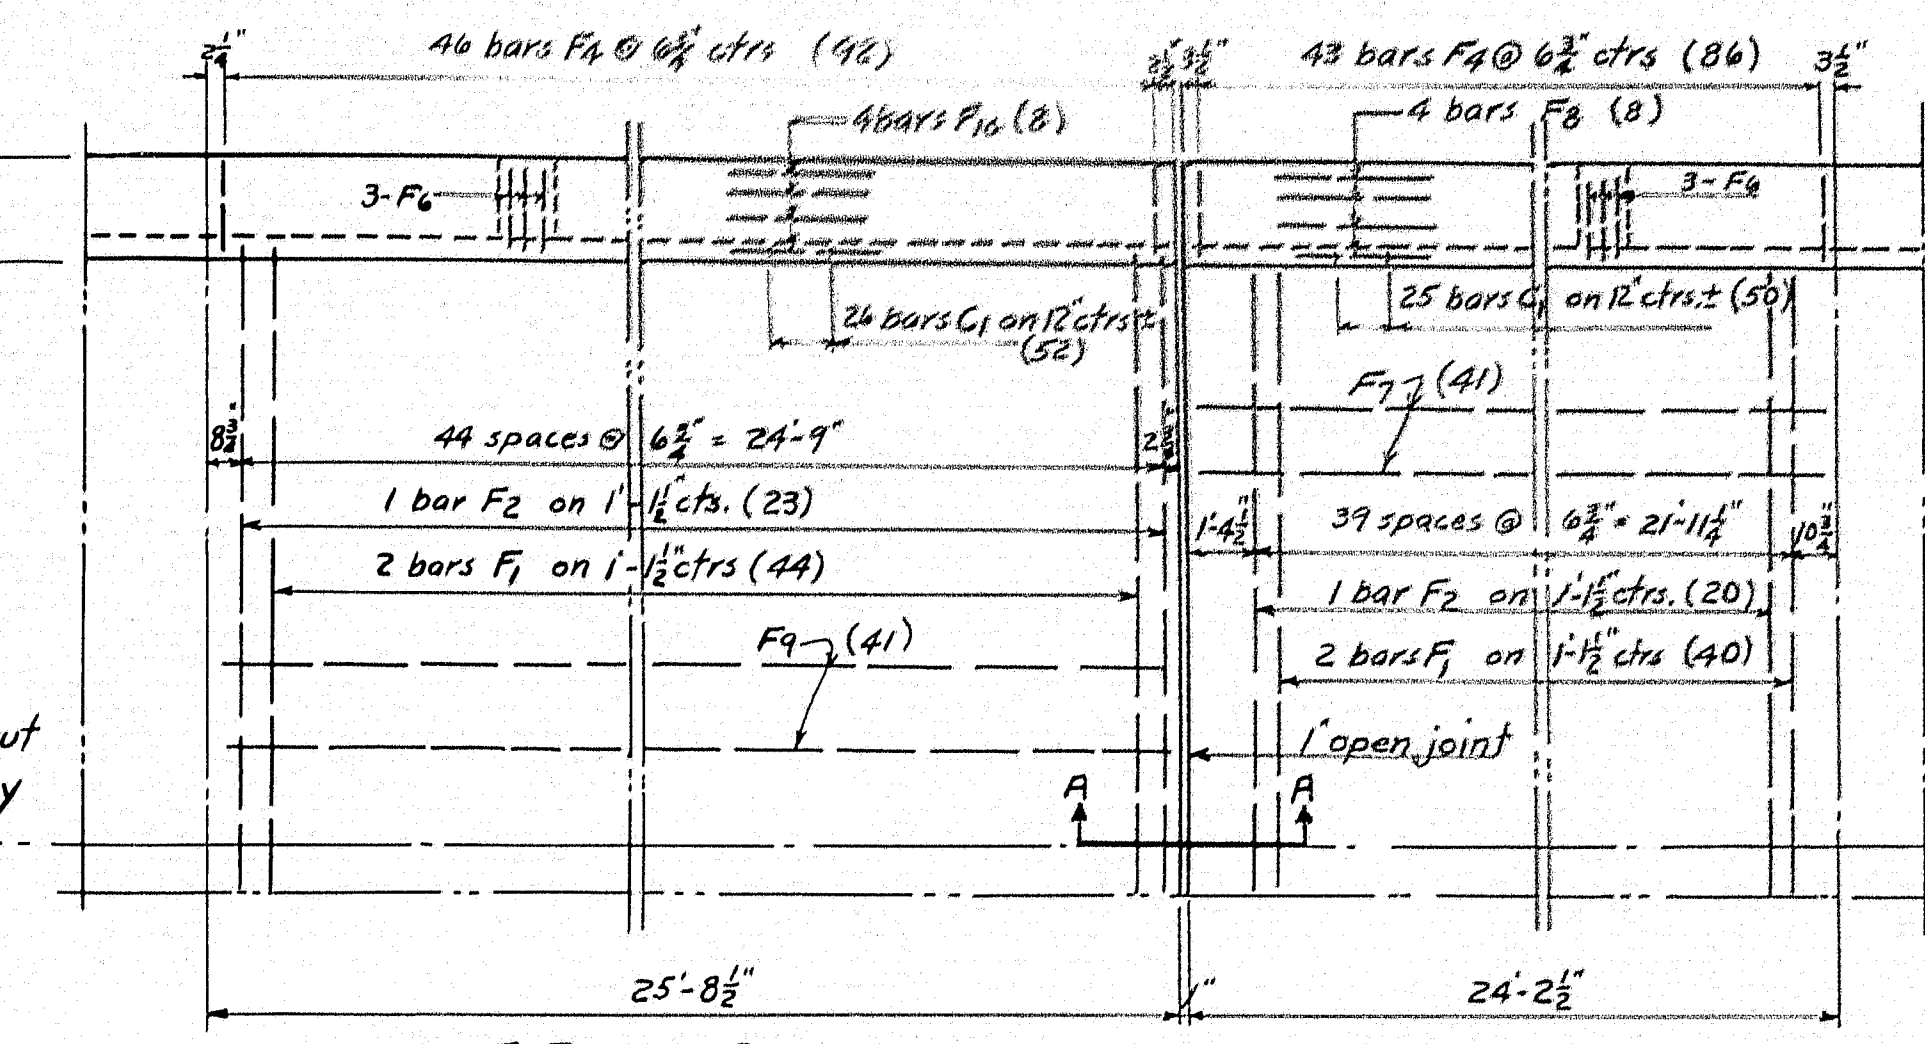 2 1/4"
46 bars F4 @ 6 3/4" ctrs (92)
2 1/2" 3 1/2"
43 bars F4 @ 6 3/4" ctrs (86)
3 1/2"
4 bars F10 (8)
4 bars F8 (8)
3-F6
3-F6
26 bars C1 on 12" ctrs ±
(52)
25 bars C1 on 12" ctrs. ± (50)
F7 (41)
8 3/4"
44 spaces @ 6 3/4" = 24'-9"
1 bar F2 on 1'-1 1/2" cts. (23)
1'-4 1/2"
39 spaces @ 6 3/4" = 21'-11 1/4"
10 3/4"
2 bars F1 on 1'-1 1/2" ctrs (44)
1 bar F2 on 1'-1 1/2" ctrs. (20)
F9 (41)
2 bars F1 on 1'-1 1/2" ctrs (40)
ut
y
1" open joint
A A
25'-8 1/2"
1"
24'-2 1/2"